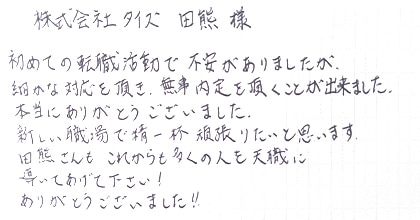 株式会社タイズ 田熊 様
初めての転職活動で不安がありましたが、
細かな対応を頂き、無事内定を頂くことが出来ました。
本当にありがとうございました。
新しい職場で精一杯頑張りたいと思います。
田熊さんも これからも多くの人を天職に
導いてあげて下さい!
ありがとうございました!!